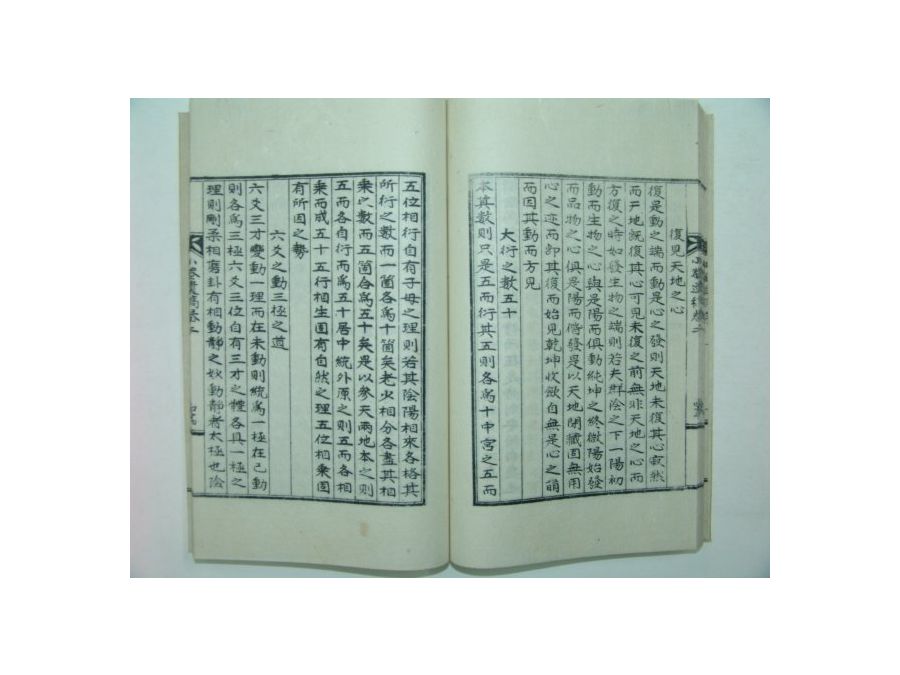 復見天地之心
復是動之端而動是心之發則天地未復其心寂然
而天地旣復其心可見未復之前無非天地之心而
方復之時如發生物之端則若夫群陰之下一陽初
動而生物之心與是陽而俱動純坤之終微陽始發
而品物之心俱是陽而偕發是以天地閉藏固無用
心之迹而卽其復而始見乾坤收斂自無是心之
而因其動而方見
大衍之數五十
本其數則只是五而衍其五則各爲十中宮之五而
五位相衍自有子母之理則若其陰陽相來各格其
所衍之數而一箇各爲十箇矣老少相分各盡其相
乘之數而五箇合爲五十矣是以參天兩地本之則
五而各自衍而爲五十居中統外原之則五而各相
乘而成五十五行相生固有自然之理五位相乘固
有所因之勢
六爻之動三極之道
六爻三才變動一理而在未動則統爲一極在已動
則各爲三極六爻三位自有三才之體各具一極之
理則剛柔相磨卦有相動靜之 動靜者太極也陰